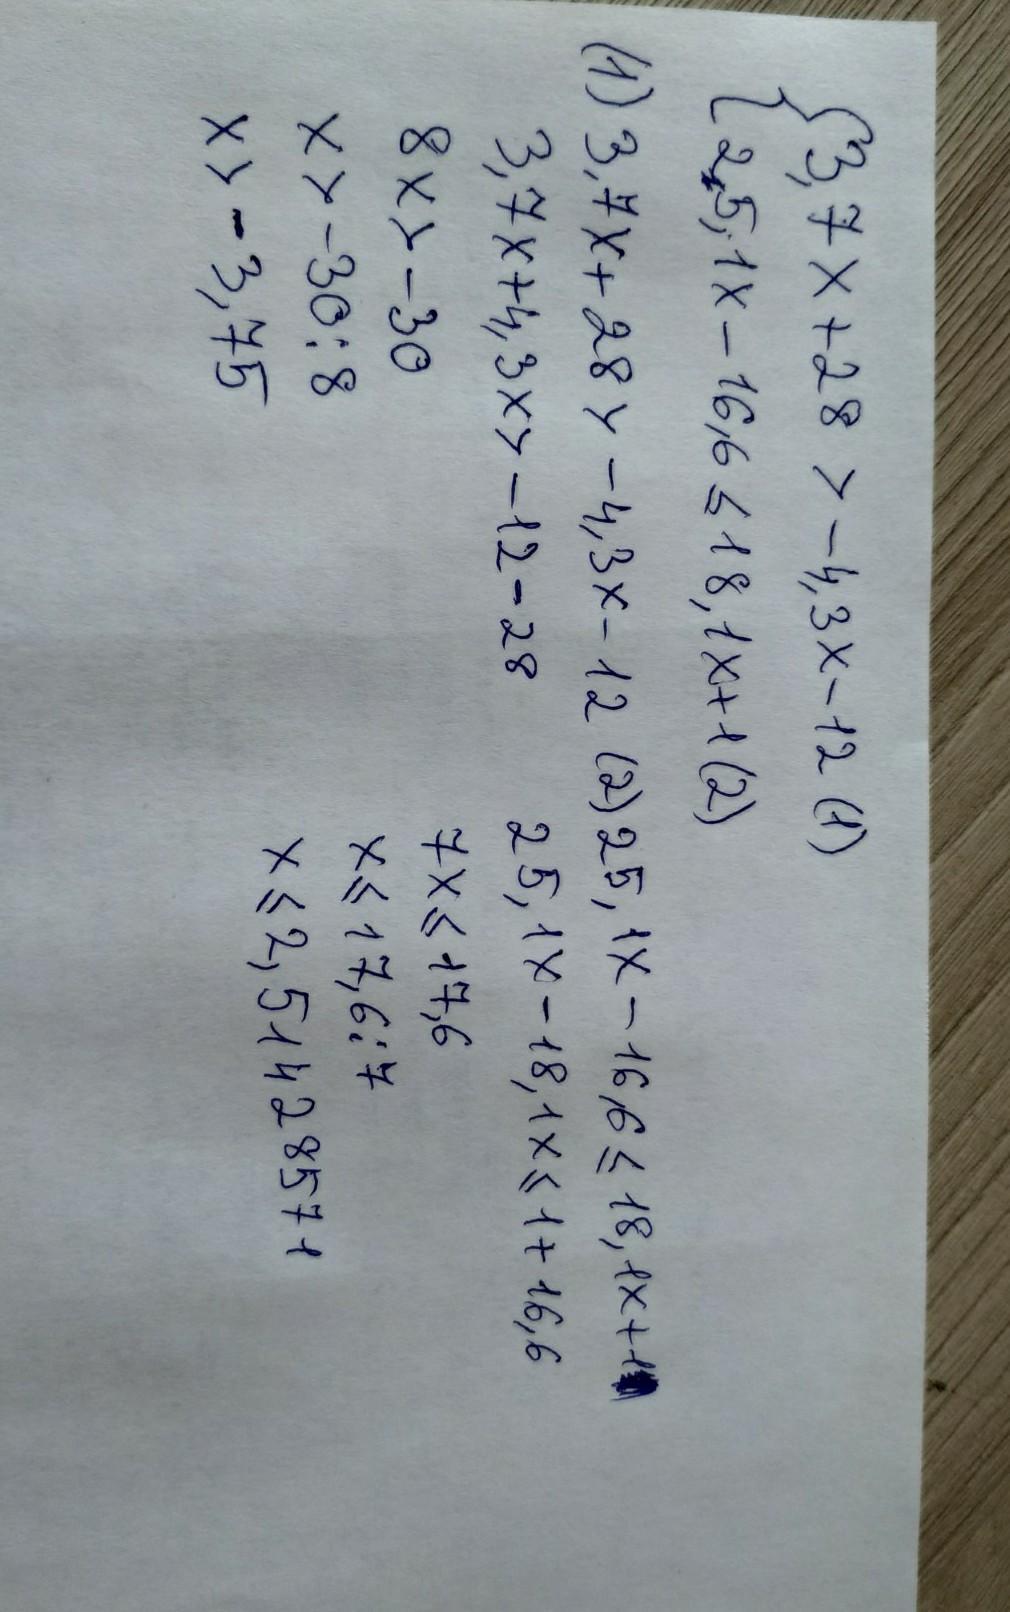 {3,7x+28 > -4,3x-12 (1)
{25,1x-16,6 ≤ 18,1x+1 (2)
(1) 3,7x+28 > -4,3x-12 (2) 25,1x-16,6 ≤ 18,1x+1
3,7x+4,3x > -12-28 25,1x-18,1x ≤ 1+16,6
8x > -30 7x ≤ 17,6
x > -30:8 x ≤ 17,6:7
x > -3,75 x ≤ 2,51428571